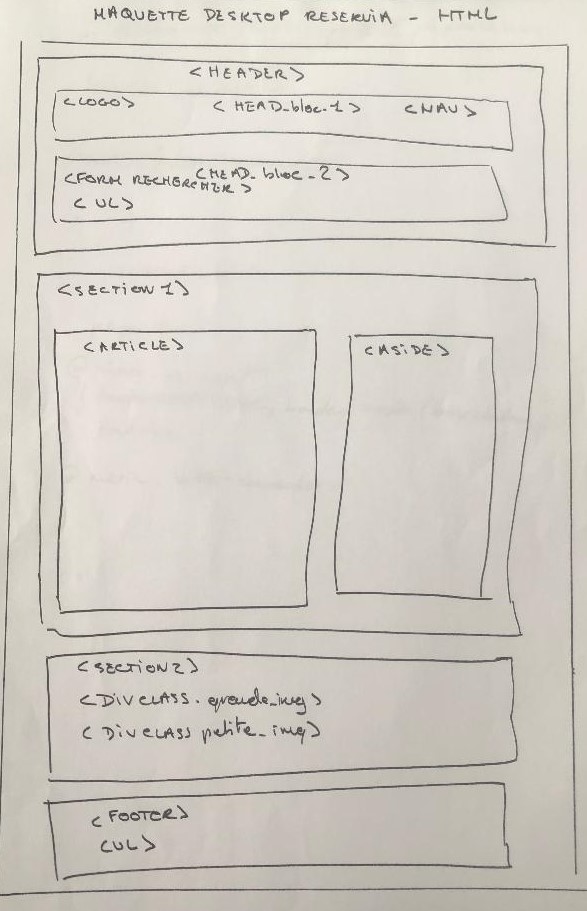 MAQUETTE DESKTOP RESERVIA - HTML
<HEADER>
<LOGO> <HEAD_bloc_1> <NAV>
<HEAD_bloc_2>
<FORM RECHERCHER>
<UL>
<SECTION 1>
<ARTICLE> <ASIDE>
<SECTION 2>
<DIV CLASS. grande_img>
<DIV CLASS petite_img>
<FOOTER>
<UL>